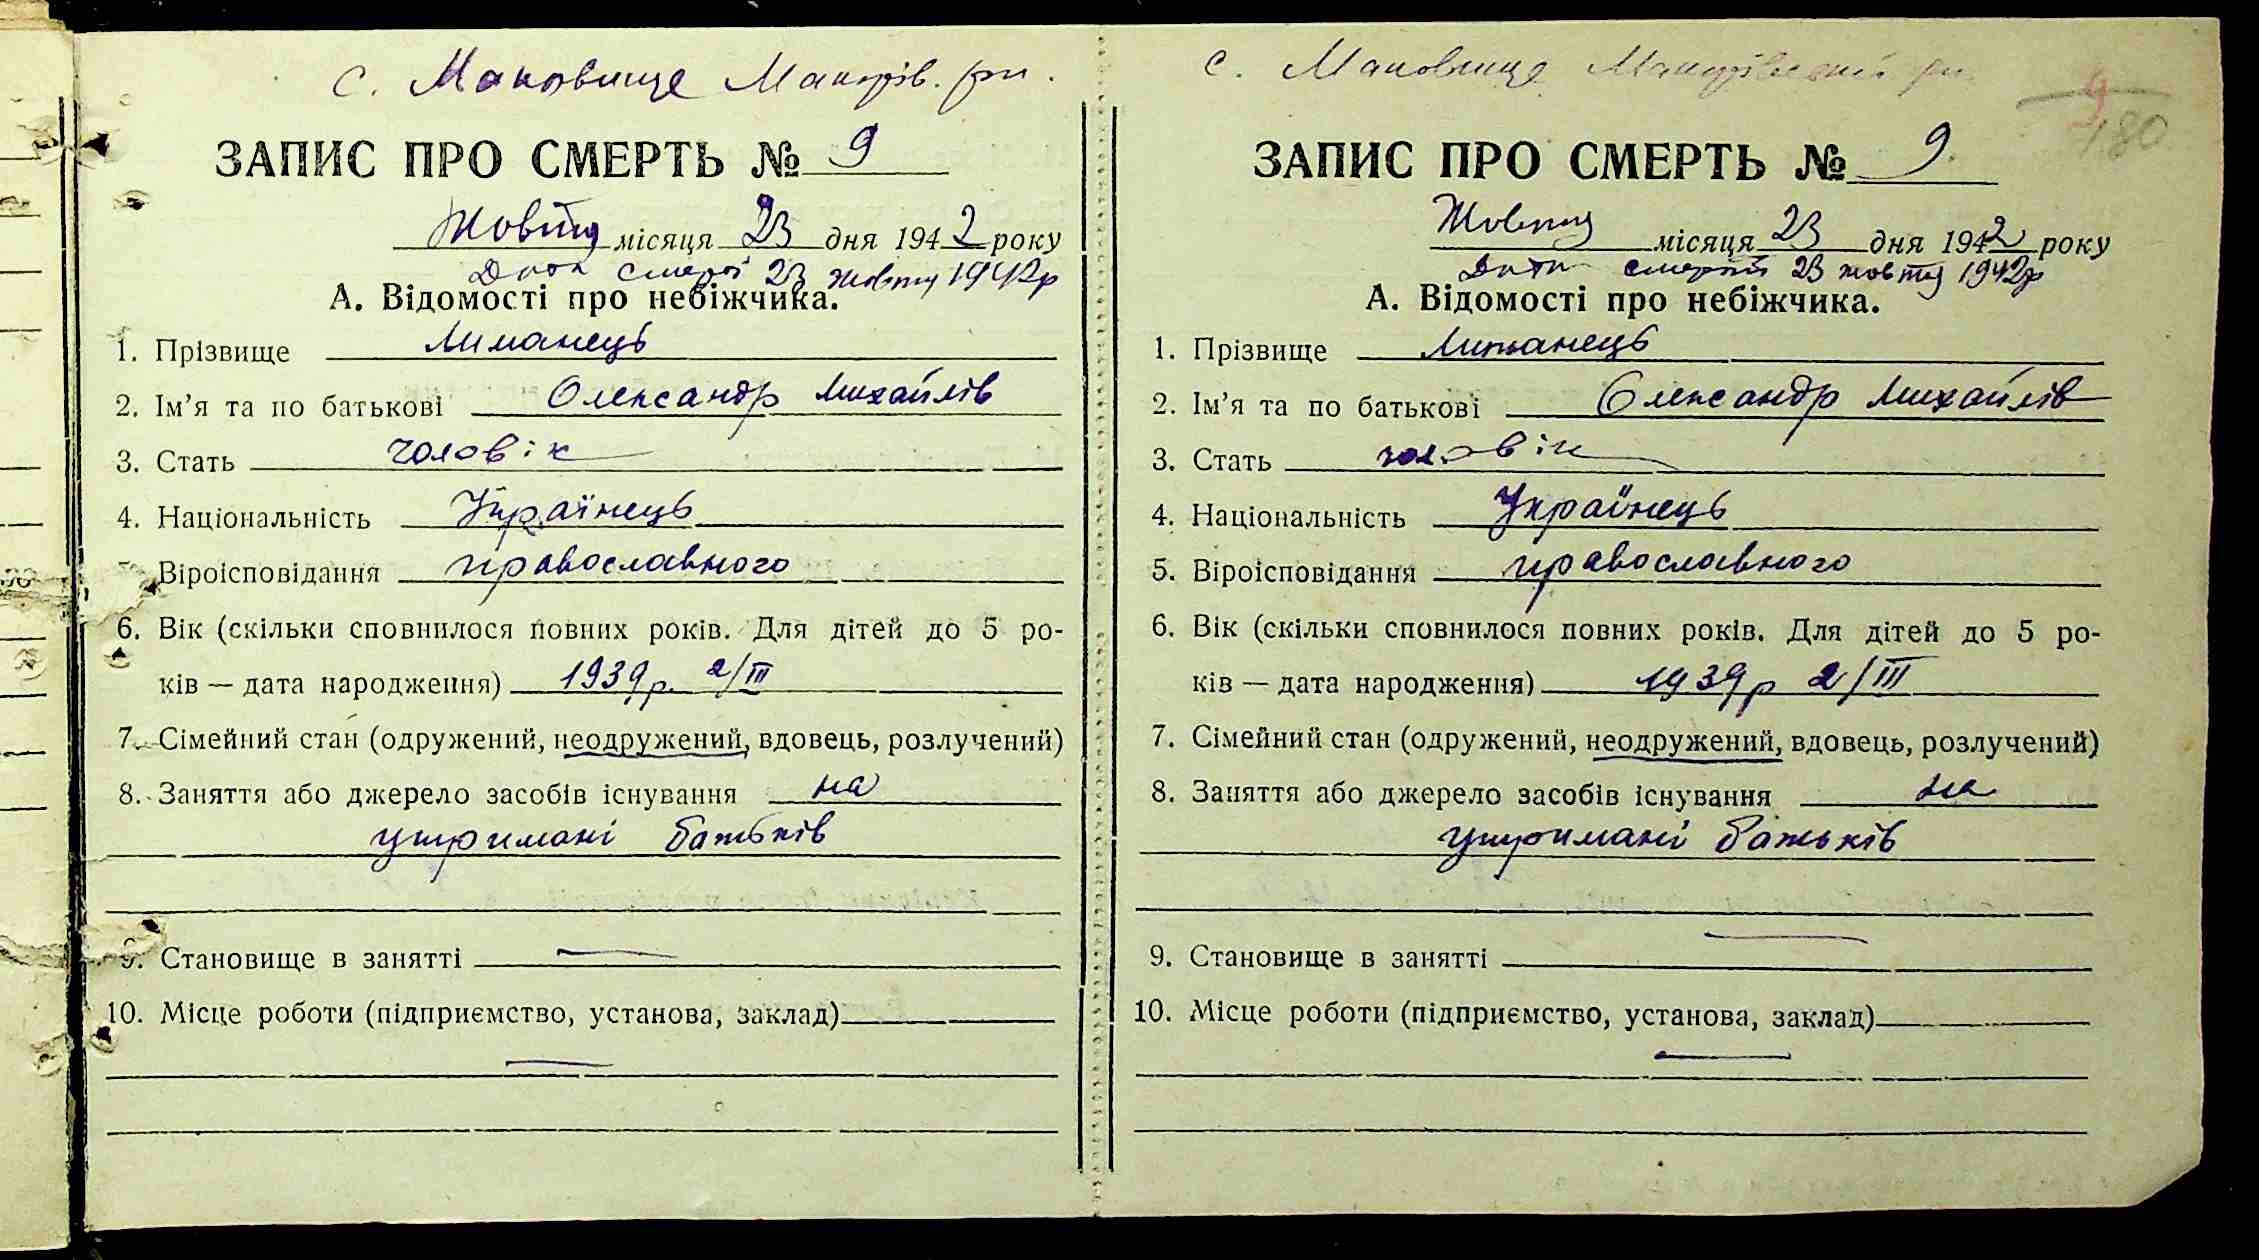 с. Маковище Макарів. рн.
ЗАПИС ПРО СМЕРТЬ № 9
Жовтня місяця 23 дня 1942 року
Дата смерті 23 жовтня 1942р
А. Відомості про небіжчика.
1. Прізвище Лиманець
2. Ім'я та по батькові Олександр Михайлів
3. Стать чоловік
4. Національність Українець
Віроісповідання православного
6. Вік (скільки сповнилося повних років. Для дітей до 5 ро-
ків — дата народження) 1939р. 2/III
7. Сімейний стан (одружений, неодружений, вдовець, розлучений)
8. Заняття або джерело засобів існування на
утримані батьків
9. Становище в занятті —
10. Місце роботи (підприємство, установа, заклад)
—
с. Маковище Макарівський рн.
9
180
ЗАПИС ПРО СМЕРТЬ № 9.
Жовтня місяця 23 дня 1942 року
Дата смерти 23 жовтня 1942р
А. Відомості про небіжчика.
1. Прізвище Лиманець
2. Ім'я та по батькові Олександр Михайлів
3. Стать чоловік
4. Національність Українець
5. Віроісповідання православного
6. Вік (скільки сповнилося повних років. Для дітей до 5 ро-
ків — дата народження) 1939р 2/III
7. Сімейний стан (одружений, неодружений, вдовець, розлучений)
8. Заняття або джерело засобів існування на
утримані батьків
9. Становище в занятті —
10. Місце роботи (підприємство, установа, заклад)
—